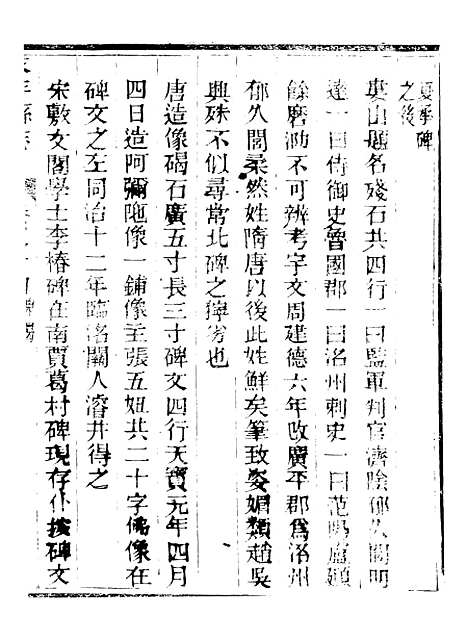 夏承碑
之後
婁山題名殘石共四行一曰監軍判官濟陰郁久閭明
達一曰侍御史魯國郡一曰洺州刺史一曰范陽盧頲
餘磨泐不可辨考宇文周建德六年改廣平郡爲洺州
郁久閭柔然姓隋唐以後此姓鮮矣筆致姿媚類趙吳
興殊不似尋常北碑之獰劣也
唐造像碣石廣五寸長三寸碑文四行天寶元年四月
四日造阿彌陁像一鋪像主張五妞共二十字佛像在
碑文之左同治十二年臨洺關人濬井得之
宋敷文閣學士李椿碑在南賈葛村碑現存仆按碑文